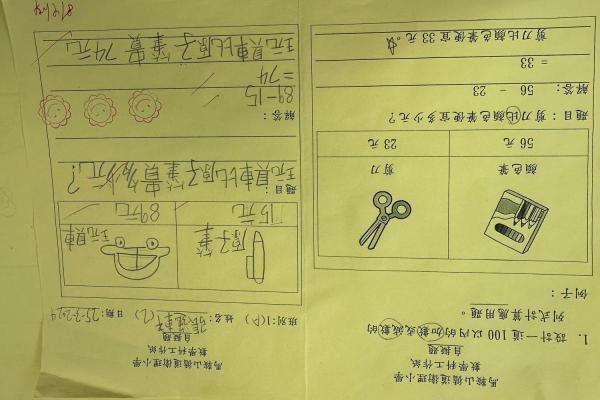 馬鞍山循道衛理小學
數學科工作紙
自擬題
1. 設計一道 100 以內的加數或減數的
列式計算應用題。
例子：
顏色筆
剪刀
56 元
23 元
題目：剪刀比顏色筆便宜多少元？
解答： 56 - 23
= 33
剪刀比顏色筆便宜 33 元。
馬鞍山循道衛理小學
數學科工作紙
自擬題
班別：1(P) 姓名： (2) 日期：25-3-2024
原子筆
玩具車
15元
89元
題目：
玩具車比原子筆貴多少元？
解答：
89-15
=74
玩具車比原子筆貴 74元